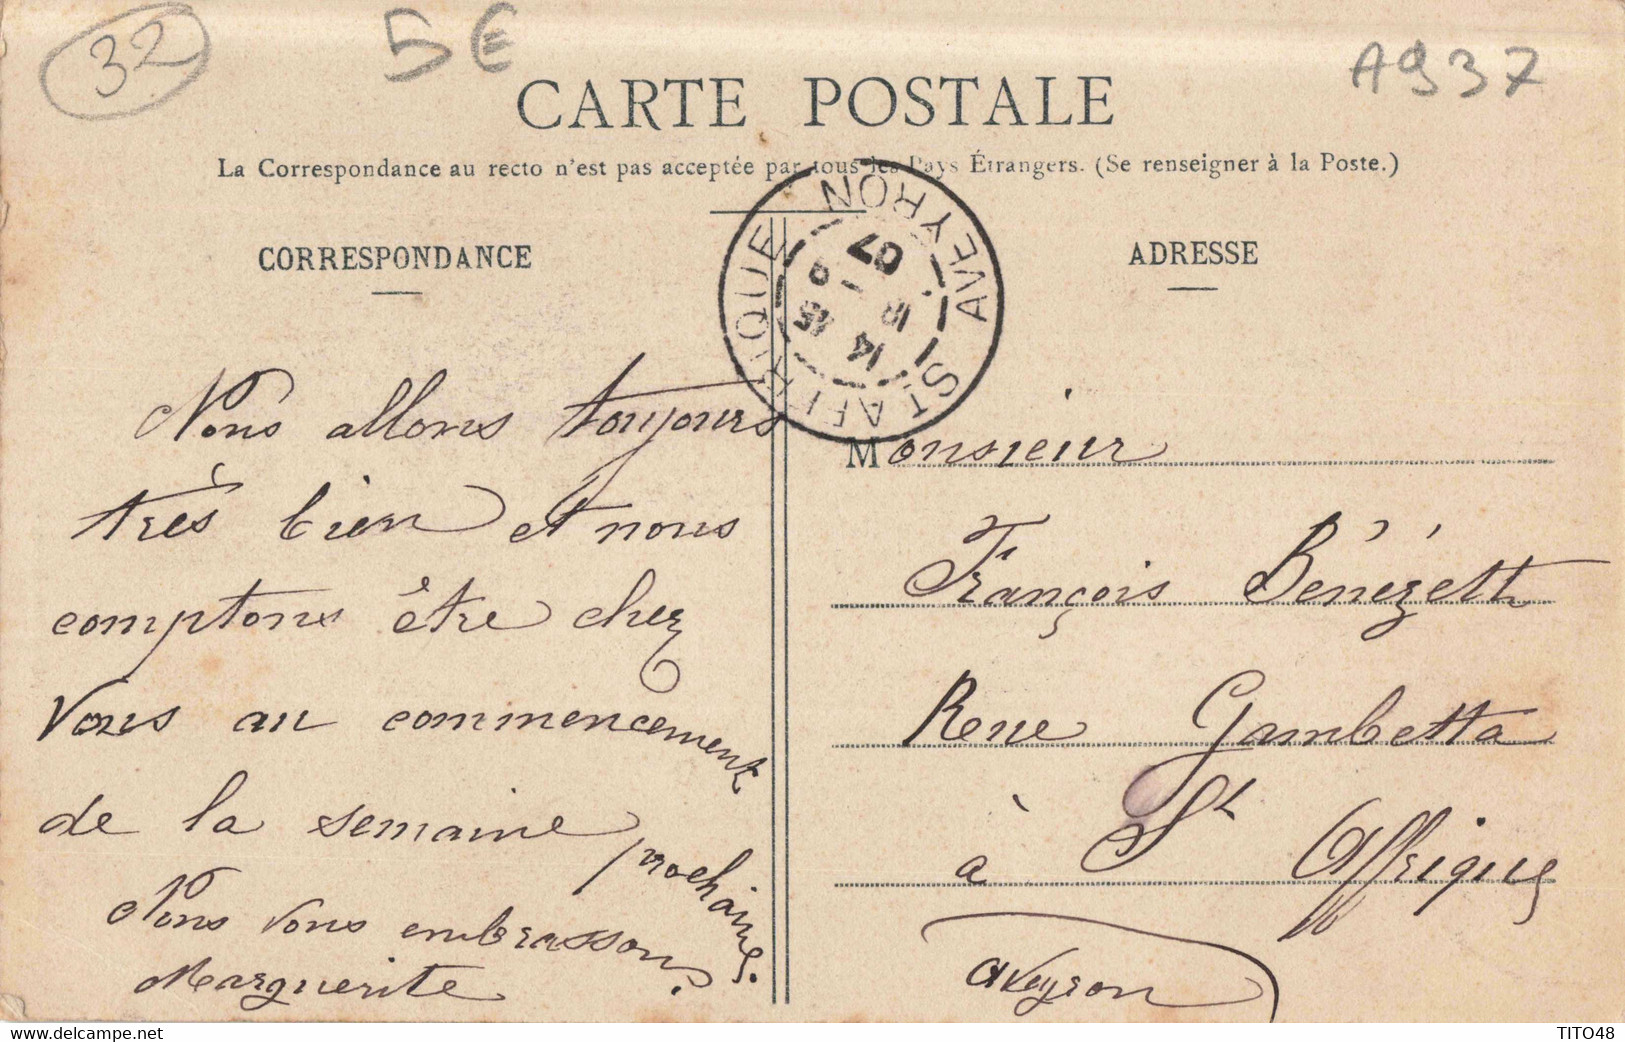 32
5€
A937
CARTE POSTALE
La Correspondance au recto n'est pas acceptée par tous les Pays Étrangers. (Se renseigner à la Poste.)
CORRESPONDANCE
ADRESSE
ST AFFRIQUE AVEYRON
14 15
07
Nous allons toujours
très bien et nous
comptons être chez
vous au commencement
de la semaine prochaine.
Nous vous embrassons.
Marguerite
Monsieur
François Bénézett
Rene Gambetta
à St Affrique
Aveyron
TITO48